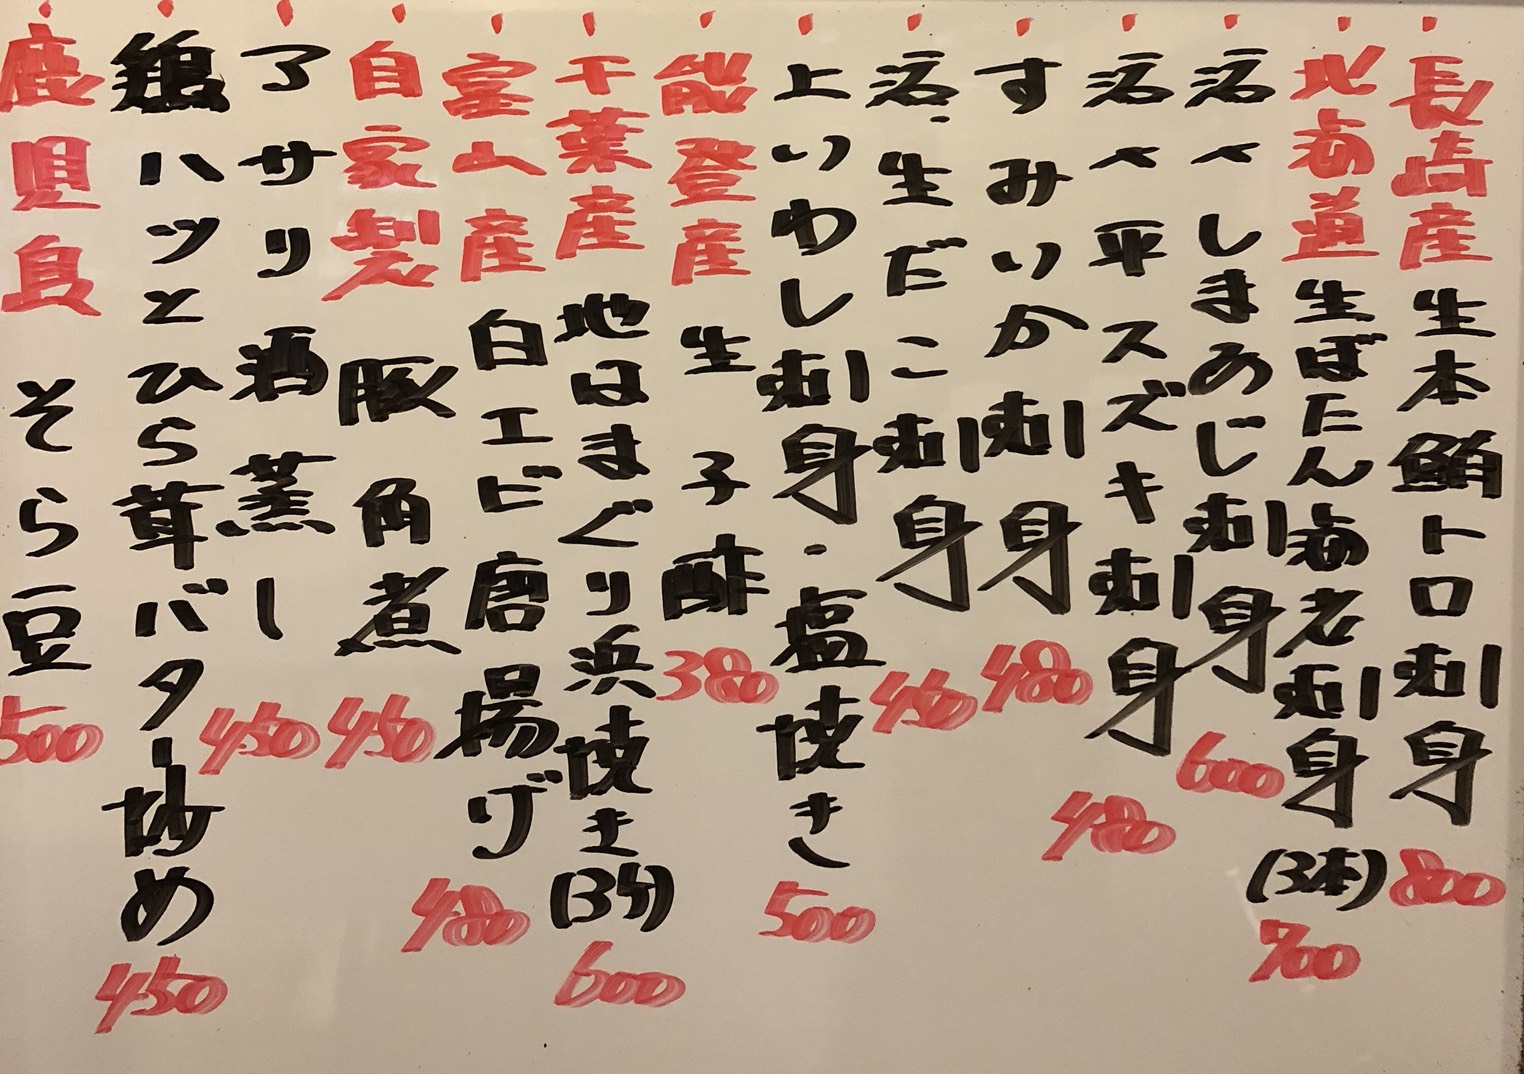 長崎産 生本鮪トロ刺身 800
北海道 生ぼたん海老刺身 (3本) 700
活〆しまあじ刺身 600
活〆平スズキ刺身 480
すみいか刺身 480
活・生だこ刺身 450
上いわし刺身・塩焼き 500
能登産 生子酢 380
千葉産 地はまぐり浜焼き (3ケ) 600
富山産 白エビ唐揚げ 480
自家製 豚角煮 450
アサリ酒蒸し 450
鶏ハツとひら茸バター炒め 450
鹿児島 そら豆 500